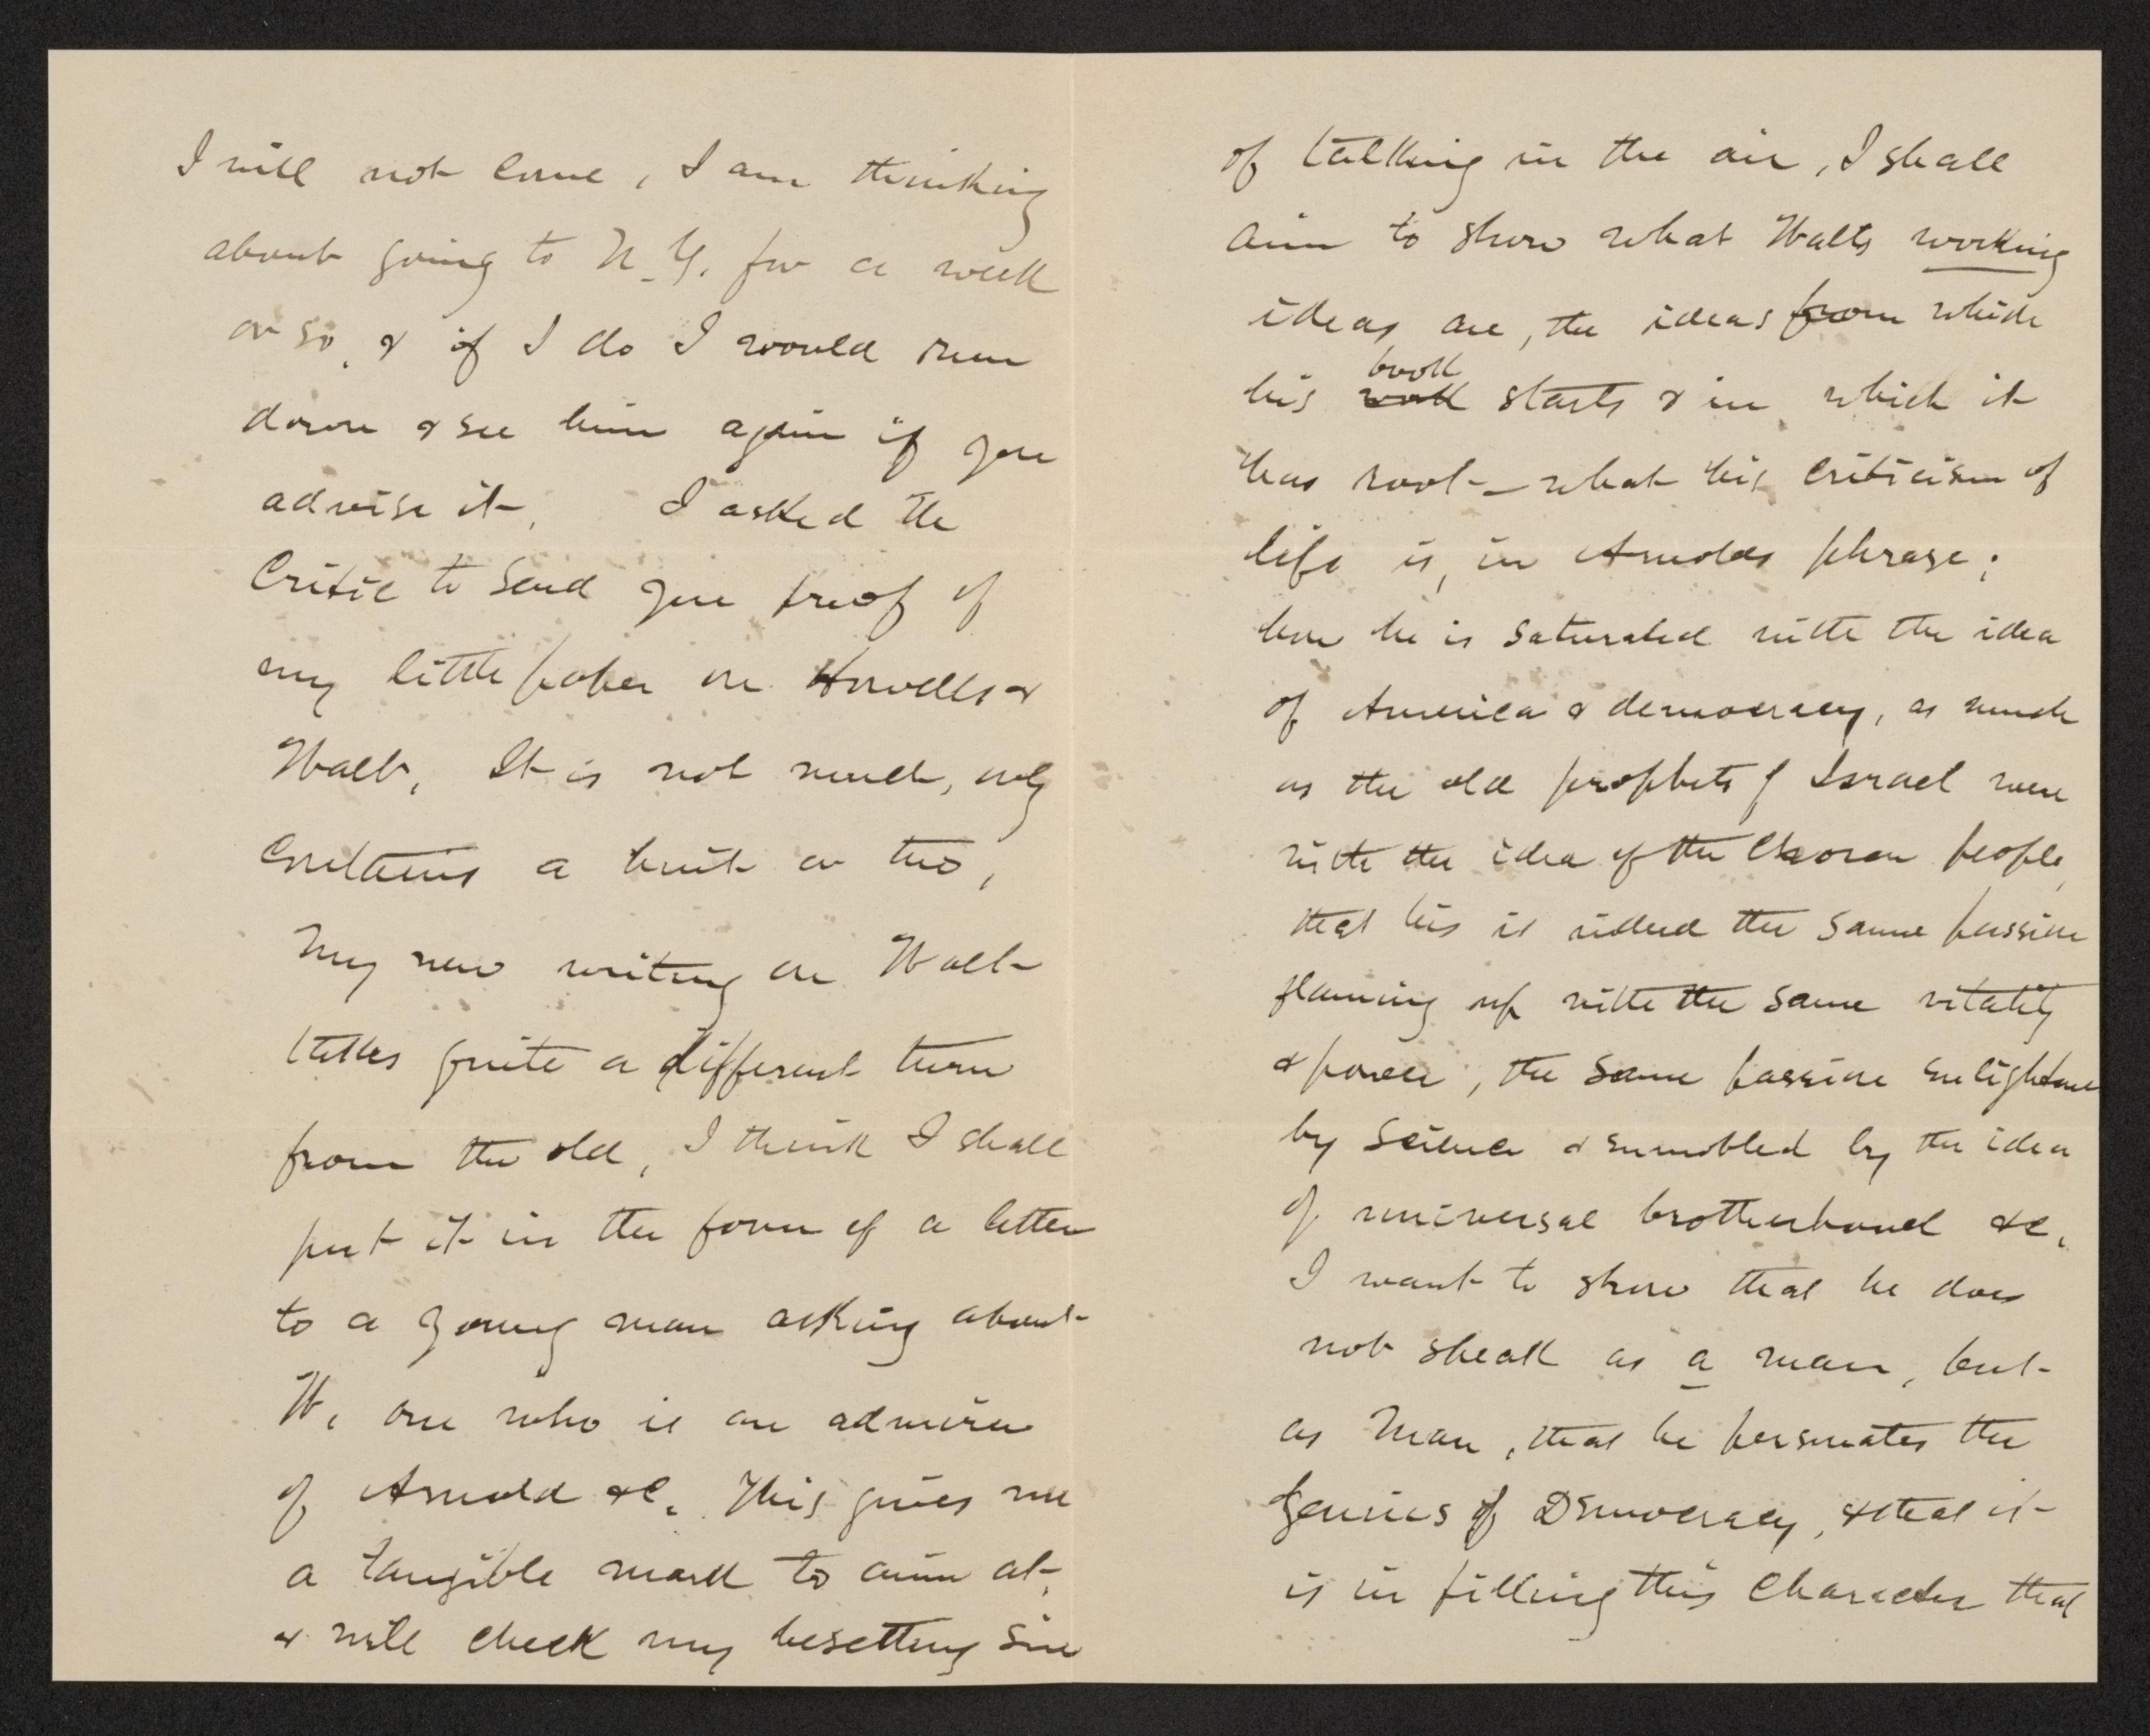 I will not come, I am thinking
about going to N.Y. for a week
or so, & if I do I would run
down & see him again if you
advise it. I asked the
Critic to send you proof of
my little paper on Howells &
Walt. It is not much, only
contains a hint or two,
My new writing on Walt
takes quite a different turn
from the old, I think I shall
put it in the form of a letter
to a young man asking about
W, one who is an admirer
of Arnold &c. This gives me
a tangible mark to aim at,
& will check my besetting sin
of talking in the air, I shall
aim to show what Walts working
ideas are, the ideas from which
book
his work starts & in which it
has root — what his criticism of
life is, in Arnolds phrase;
how he is saturated with the idea
of America & democracy, as much
as the old prophets of Israel were
with the idea of the chosen people,
that his is indeed the same passion
flaming up with the same vitality
& power, the same passion enlightened
by science & ennobled by the idea
of universal brotherhood &c.
I want to show that he does
not speak as a man, but
as Man, that he personates the
Genius of Democracy, & that it
is in filling this character that